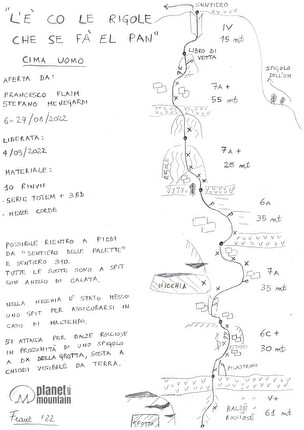 "L'È CO LE RIGOLE
CHE SE FÀ EL PAN"
CIMA UOMO
APERTA DA:
FRANCESCO FLAIM
STEFANO MENEGARDI
6-27/08/2022
LIBERATA:
4/09/2022
MATERIALE:
10 RINVII
- SERIE TOTEM + 3BD
- MEZZE CORDE
POSSIBILE RIENTRO A PIEDI
DA "SENTIERO DELLE PALETTE"
E SENTIERO 310.
TUTTE LE SOSTE SONO A SPIT
CON ANELLO DI CALATA.
NELLA NICCHIA È STATO MESSO
UNO SPIT PER ASSICURARSI IN
CASO DI MALTEMPO.
SI ATTACCA PER BALZE ROCCIOSE
IN PROSSIMITÀ DI UNO SPIGOLO
A DX DELLA GROTTA, SOSTA A
CHIODI VISIBILE DA TERRA.
planet mountain
Franz '22
SENTIERO
IV
15 mt
LIBRO DI
VETTA
SPIGOLO
DELL'OM
7A +
55 mt
7A +
25 mt
RIGOLE
6A
35 mt
7A
35 mt
NICCHIA
6C +
30 mt
PILASTRINO
V+
BALZE
ROCCIOSE
61 mt
GROTTA